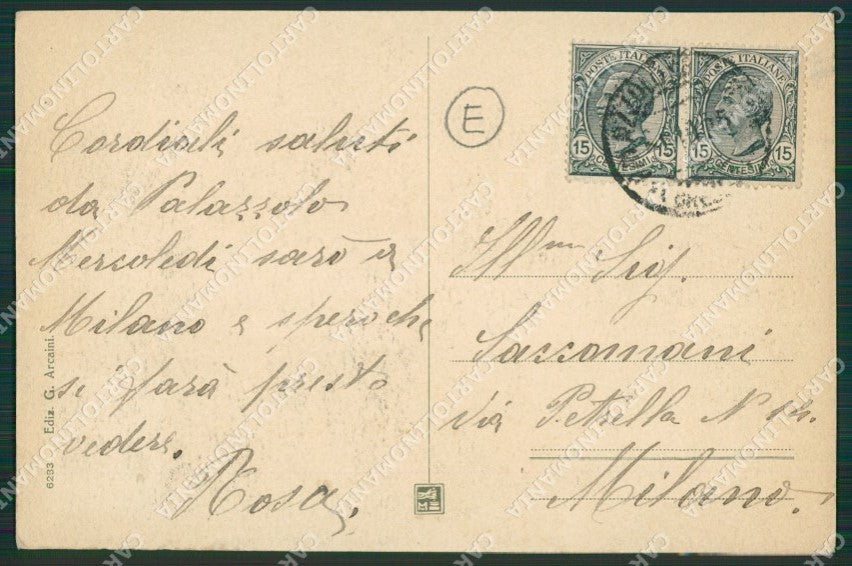 Cordiali saluti
da Palazzolo
Mercoledi sarò a
Milano e spero che
si farà presto
vedere.
Rosa,
6263 Ediz. G. Arcaini.
E
POSTE ITALIANE
15 CENTESIMI 15
POSTE ITALIANE
15 CENTESIMI 15
Ill^mo Sig.
Sassomani
Via Petrella N 14.
Milano.
CARTOLINOMANIA